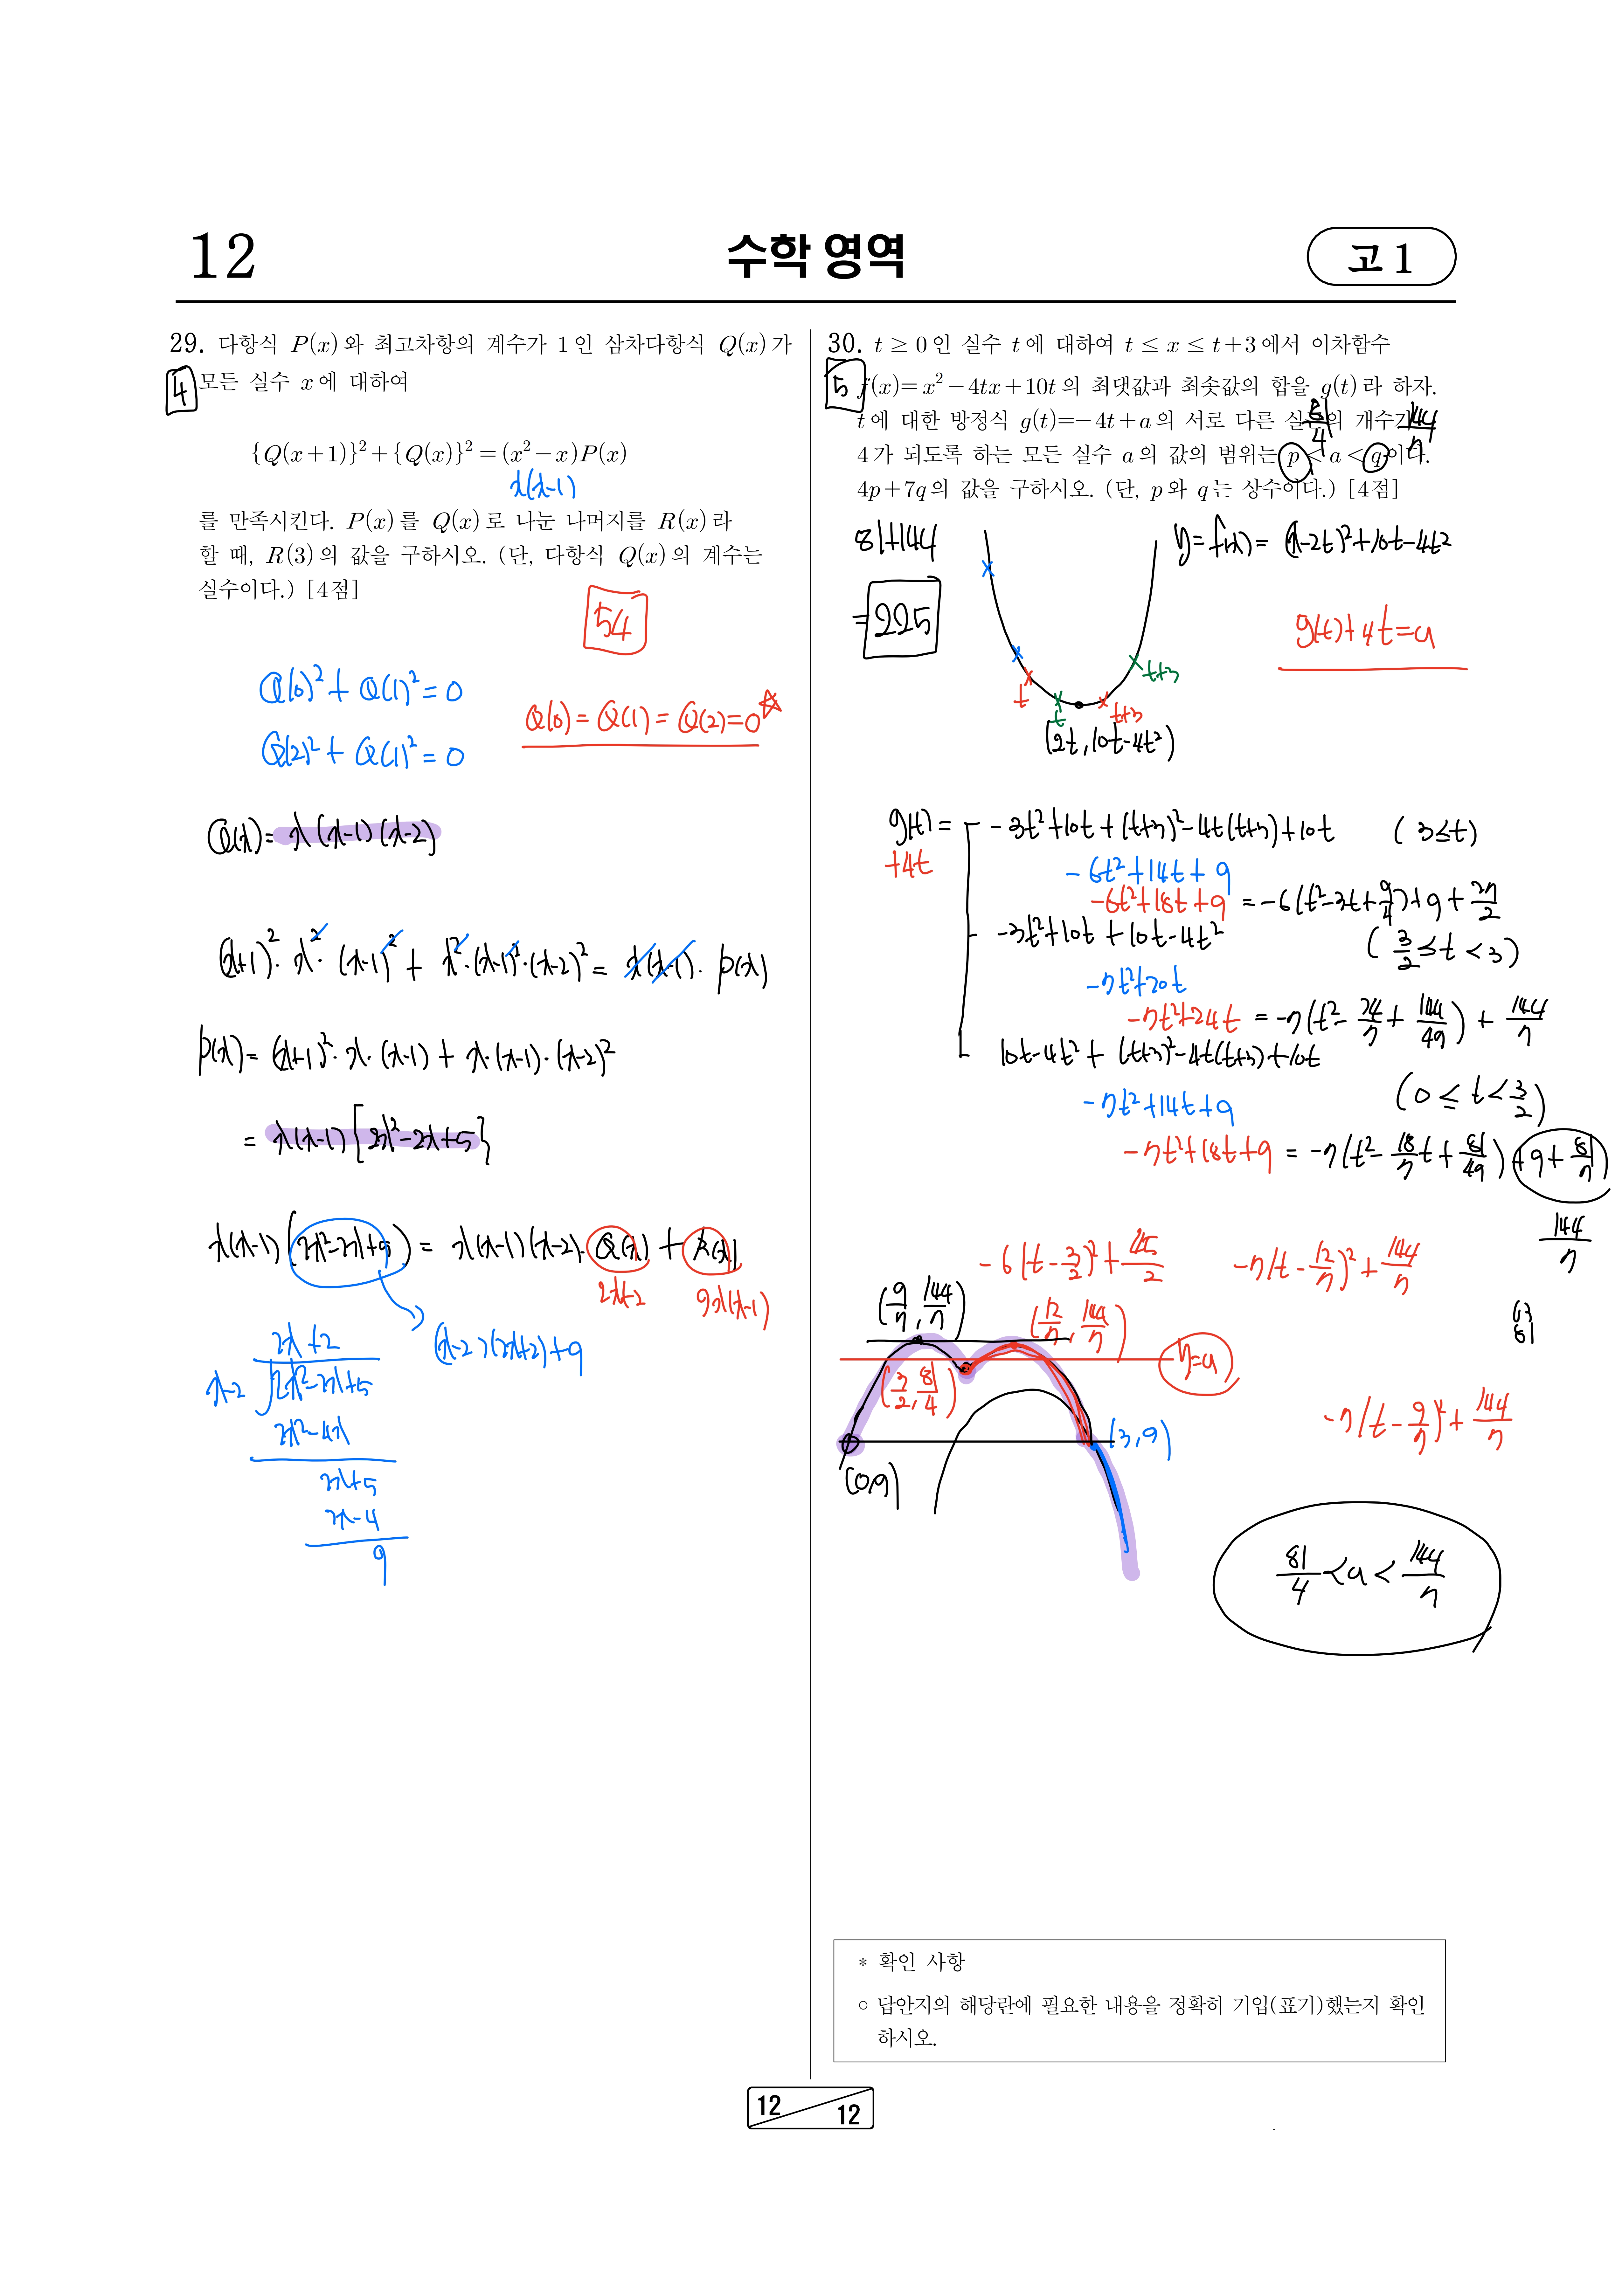 12
수학 영역
고 1
29. 다항식 P(x)와 최고차항의 계수가 1인 삼차다항식 Q(x)가
4
모든 실수 x에 대하여
{Q(x+1)}²+{Q(x)}²=(x²-x)P(x)
x(x-1)
를 만족시킨다. P(x)를 Q(x)로 나눈 나머지를 R(x)라
할 때, R(3)의 값을 구하시오. (단, 다항식 Q(x)의 계수는
실수이다.) [4점]
54
Q(0)²+Q(1)²=0
Q(0)=Q(1)=Q(2)=0☆
Q(2)²+Q(1)²=0
Q(x)=x(x-1)(x-2)
(x+1)²·x²·(x-1)²+x²·(x-1)²·(x-2)²=x(x-1)·P(x)
P(x)=(x+1)²·x·(x-1)+x·(x-1)·(x-2)²
=x(x-1)[2x²-2x+5}
x(x-1)(2x²-2x+5)=x(x-1)(x-2)·Q(x)+R(x)
2x+2
9x(x-1)
(x-2)(2x+2)+9
2x+2
x-2
2x²-2x+5
2x²-4x
2x+5
2x-4
9
30. t ≥ 0인 실수 t에 대하여 t ≤ x ≤ t+3에서 이차함수
5
f(x)=x²-4tx+10t의 최댓값과 최솟값의 합을 g(t)라 하자.
t에 대한 방정식 g(t)=-4t+a의 서로 다른 실근의 개수가
81/4
144/7
4가 되도록 하는 모든 실수 a의 값의 범위는 p < a < q이다.
4p+7q의 값을 구하시오. (단, p와 q는 상수이다.) [4점]
81+144
=225
y=f(x)=(x-2t)²+10t-4t²
g(t)+4t=a
t
t+3
t
t+3
(2t, 10t-4t²)
g(t)=
+4t
-3t²+10t+(t+3)²-4t(t+3)+10t (3≤t)
-6t²+14t+9
-6t²+18t+9=-6(t²-3t+9/4)+9+27/2
-3t²+10t+10t-4t² (3/2≤t<3)
-7t²+20t
-7t²+24t=-7(t²-24/7+144/49)+144/7
10t-4t²+(t+3)²-4t(t+3)+10t
(0≤t<3/2)
-7t²+14t+9
-7t²+18t+9=-7(t²-18/7t+81/49)+9+81/7
144/7
-6(t-3/2)²+45/2
-7(t-12/7)²+144/7
(9/7, 144/7)
(12/7, 144/7)
63
81
y=a
(3/2, 81/4)
-7(t-9/7)²+144/7
(3,9)
(0,9)
81/4<a<144/7
* 확인 사항
○ 답안지의 해당란에 필요한 내용을 정확히 기입(표기)했는지 확인
하시오.
12
12